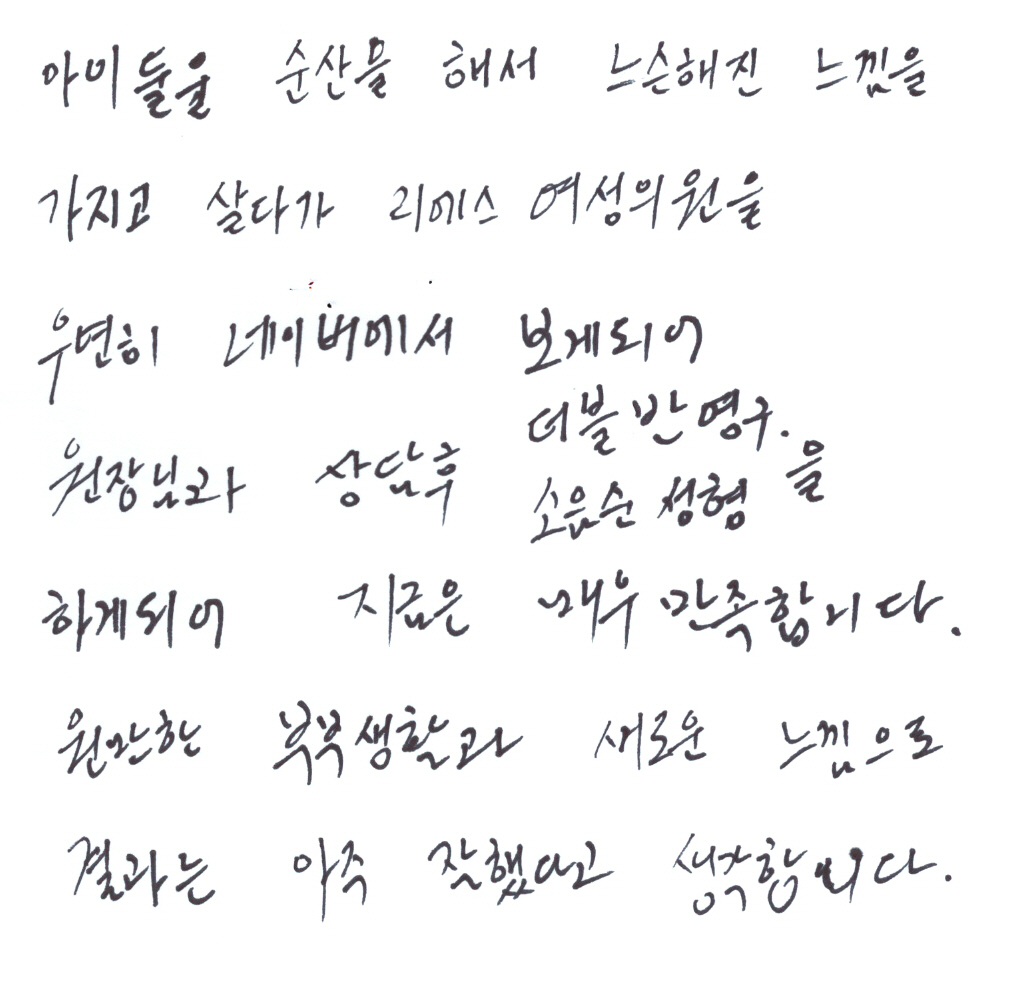 아이둘을 순산을 해서 느슨해진 느낌을
가지고 살다가 리에스 여성의원을
우연히 네이버에서 보게되어
원장님과 상담후 더블 반영구.
소음순 성형 을
하게되어 지금은 매우 만족합니다.
원만한 부부생활과 새로운 느낌으로
결과는 아주 잘했다고 생각합니다.